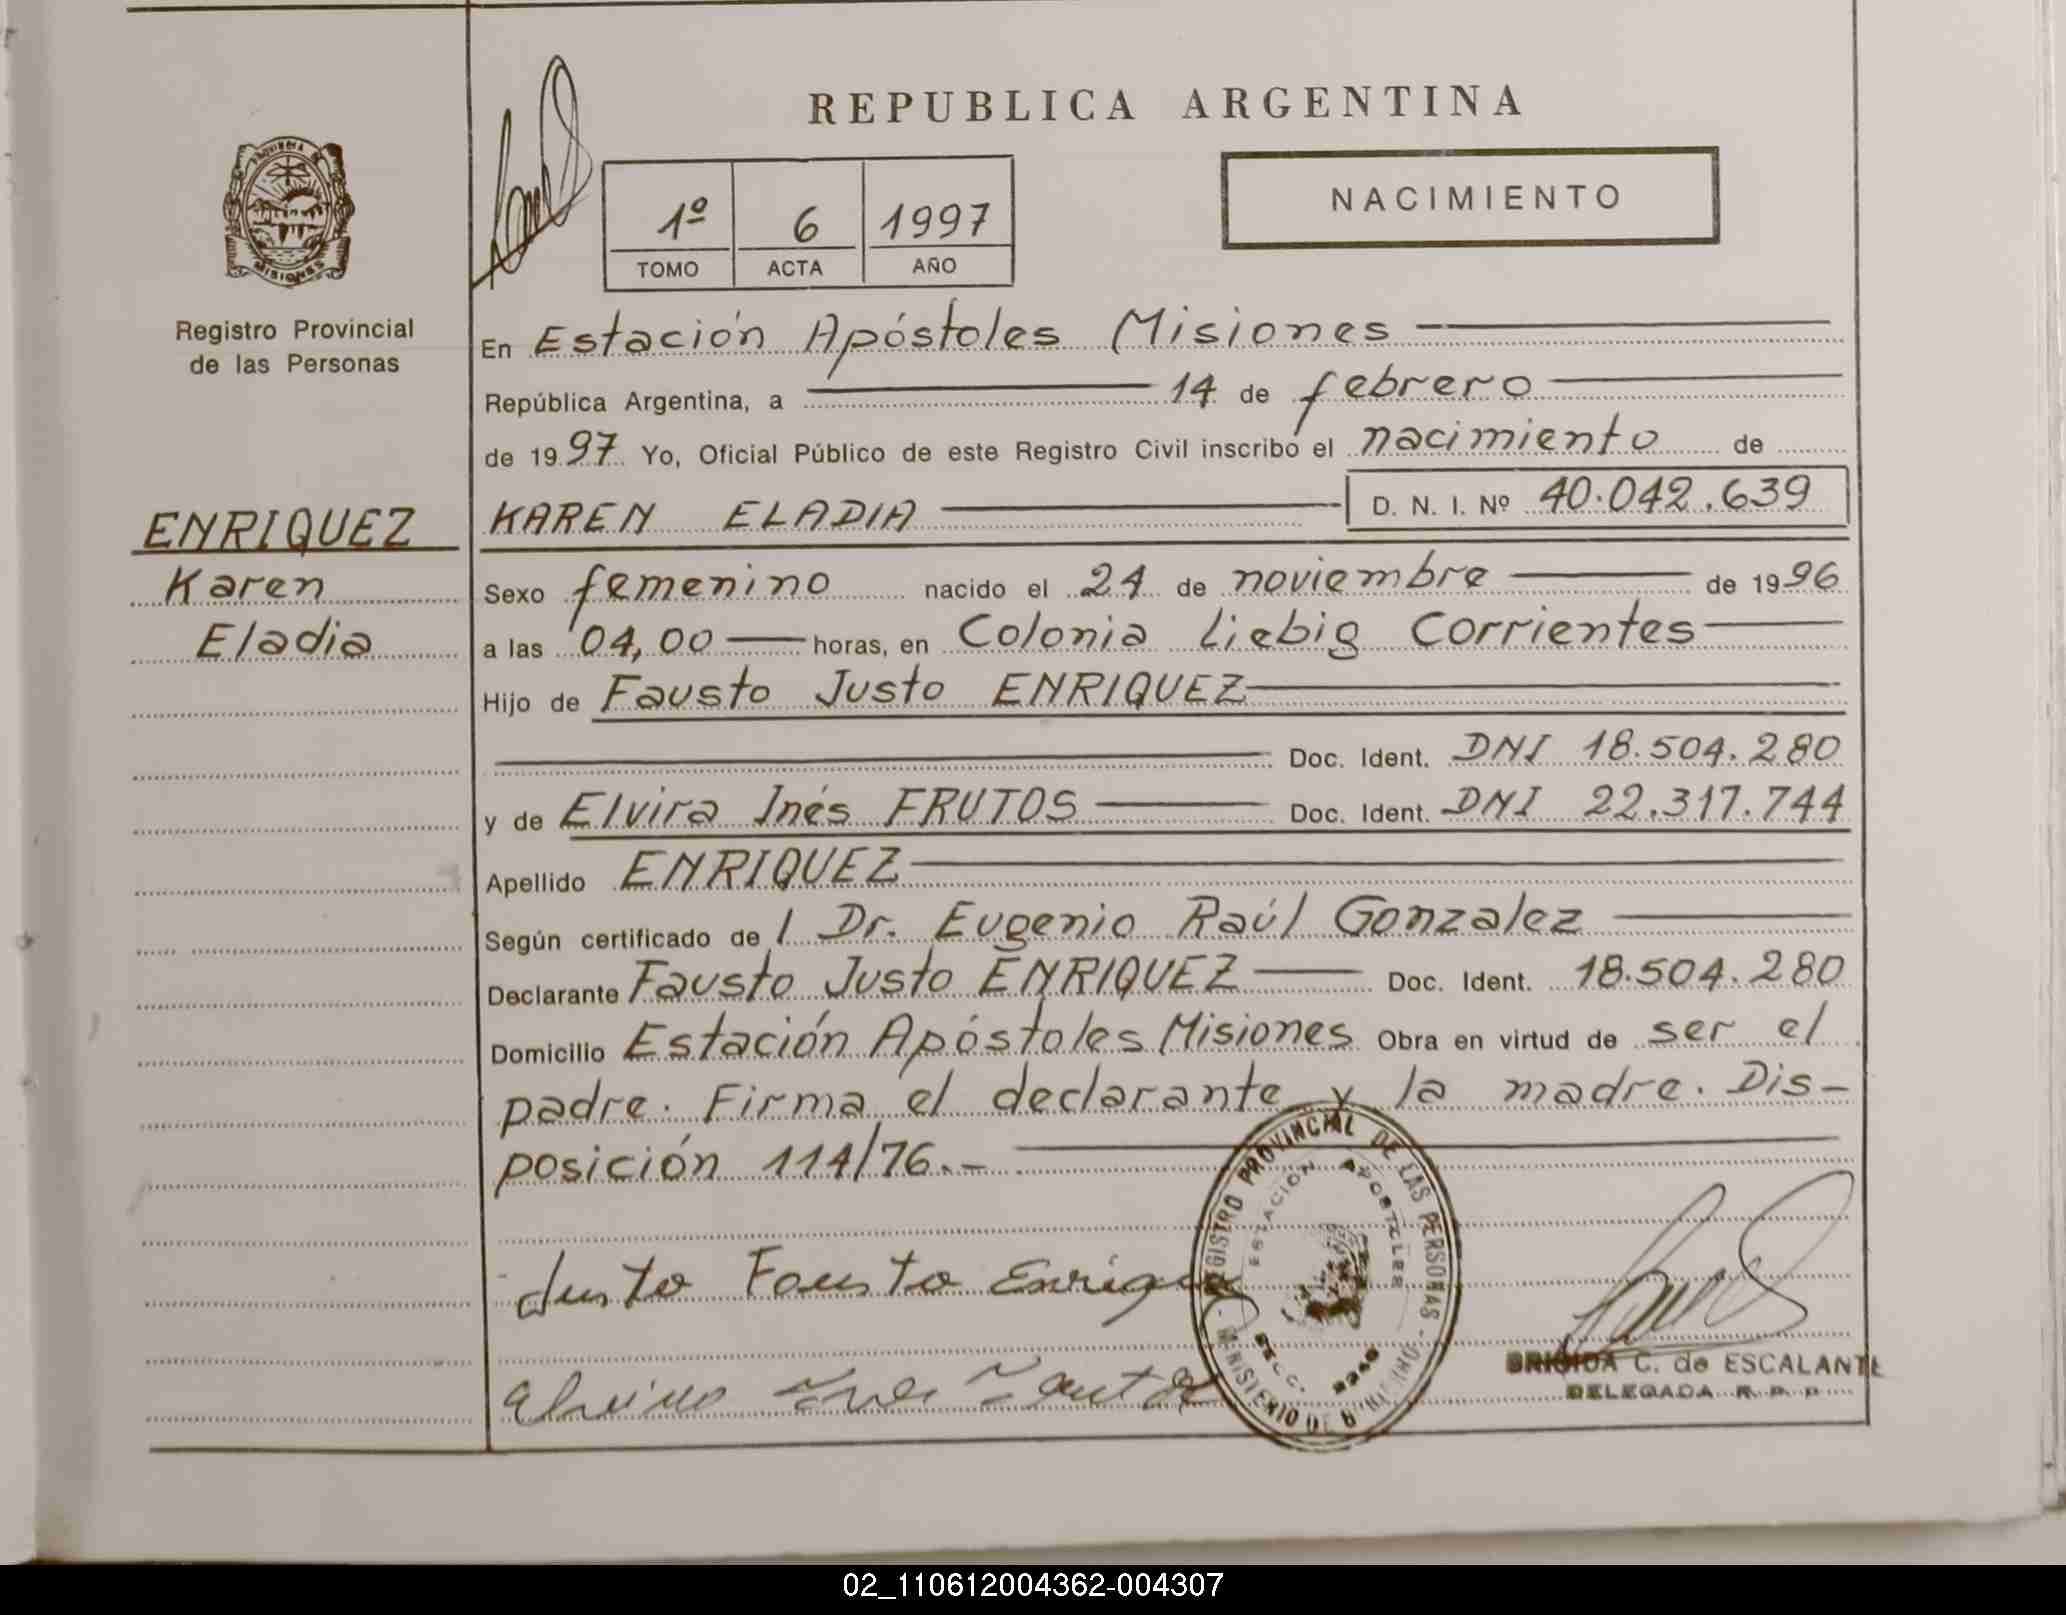 REPUBLICA ARGENTINA
NACIMIENTO
1º 6 1997
TOMO ACTA AÑO
PROVINCIA DE
MISIONES
Registro Provincial
de las Personas
ENRIQUEZ
Karen
Eladia
En Estación Apóstoles Misiones
República Argentina, a 14 de febrero
de 1997 Yo, Oficial Público de este Registro Civil inscribo el nacimiento de
KAREN ELADIA D. N. I. Nº 40.042.639
Sexo femenino nacido el 24 de noviembre de 1996
a las 04,00 horas, en Colonia Liebig Corrientes
Hijo de Fausto Justo ENRIQUEZ
Doc. Ident. DNI 18.504.280
y de Elvira Inés FRUTOS Doc. Ident. DNI 22.317.744
Apellido ENRIQUEZ
Según certificado de l Dr. Eugenio Raúl Gonzalez
Declarante Fausto Justo ENRIQUEZ Doc. Ident. 18.504.280
Domicilio Estación Apóstoles Misiones Obra en virtud de ser el
padre. Firma el declarante y la madre. Dis-
posición 114/76.-
REGISTRO PROVINCIAL DE LAS PERSONAS - MINISTERIO DE GOBIERNO -
ESTACION APOSTOLES
SECC.
Justo Fausto Enriquez
BRIGIDA C. de ESCALANTE
DELEGADA R. P. P.
02_110612004362-004307